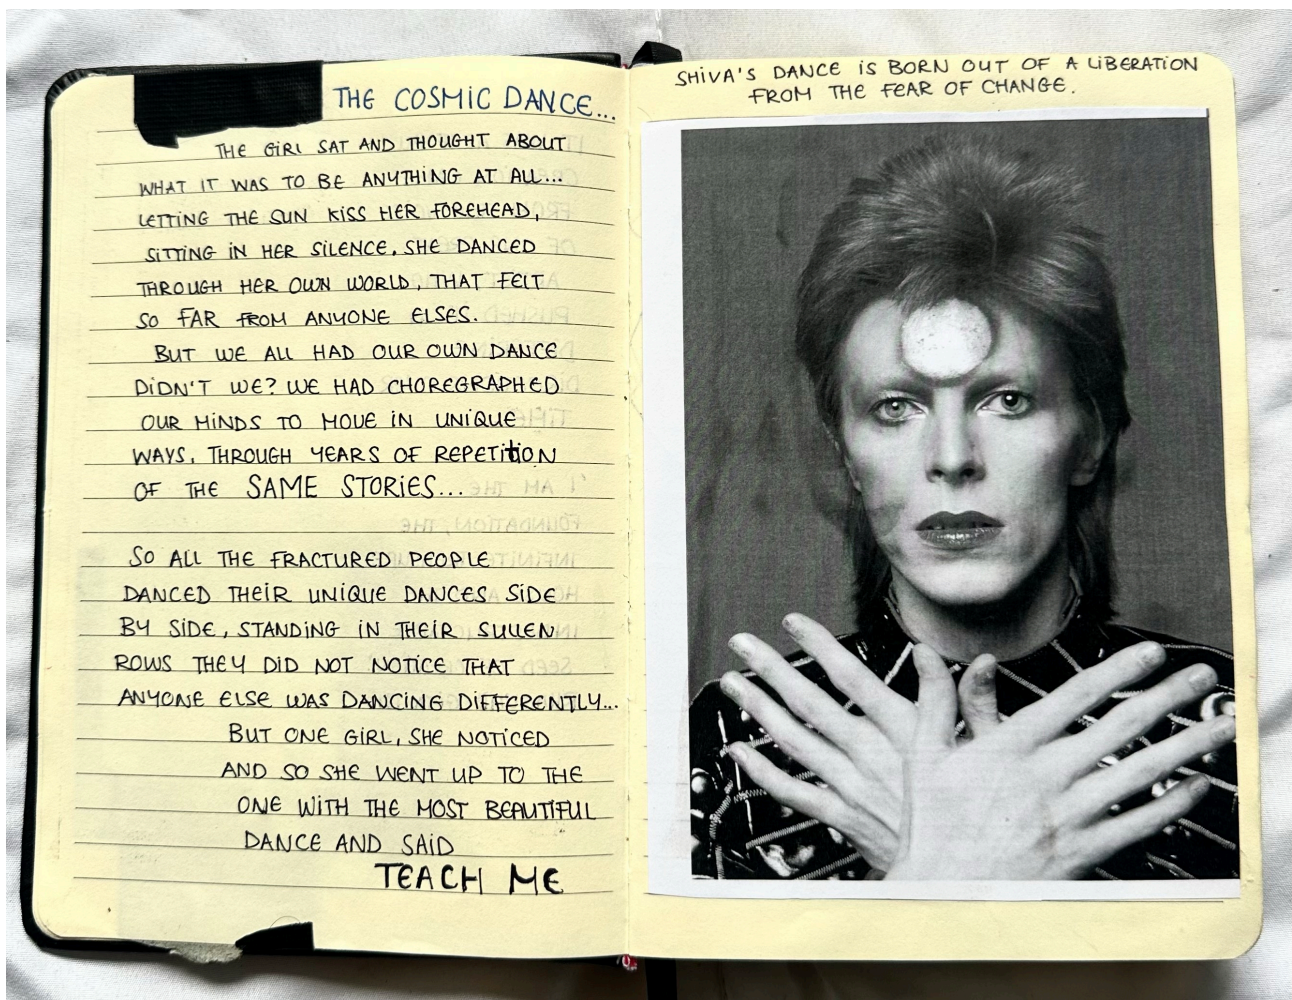 THE COSMIC DANCE...
THE GIRL SAT AND THOUGHT ABOUT
WHAT IT WAS TO BE ANYTHING AT ALL...
LETTING THE SUN KISS HER FOREHEAD,
SITTING IN HER SILENCE, SHE DANCED
THROUGH HER OWN WORLD, THAT FELT
SO FAR FROM ANYONE ELSES.
BUT WE ALL HAD OUR OWN DANCE
DIDN'T WE? WE HAD CHOREGRAPHED
OUR MINDS TO MOVE IN UNIQUE
WAYS, THROUGH YEARS OF REPETITION
OF THE SAME STORIES...
SO ALL THE FRACTURED PEOPLE
DANCED THEIR UNIQUE DANCES SIDE
BY SIDE, STANDING IN THEIR SULLEN
ROWS THEY DID NOT NOTICE THAT
ANYONE ELSE WAS DANCING DIFFERENTLY...
BUT ONE GIRL, SHE NOTICED
AND SO SHE WENT UP TO THE
ONE WITH THE MOST BEAUTIFUL
DANCE AND SAID
TEACH ME
SHIVA'S DANCE IS BORN OUT OF A LIBERATION
FROM THE FEAR OF CHANGE.